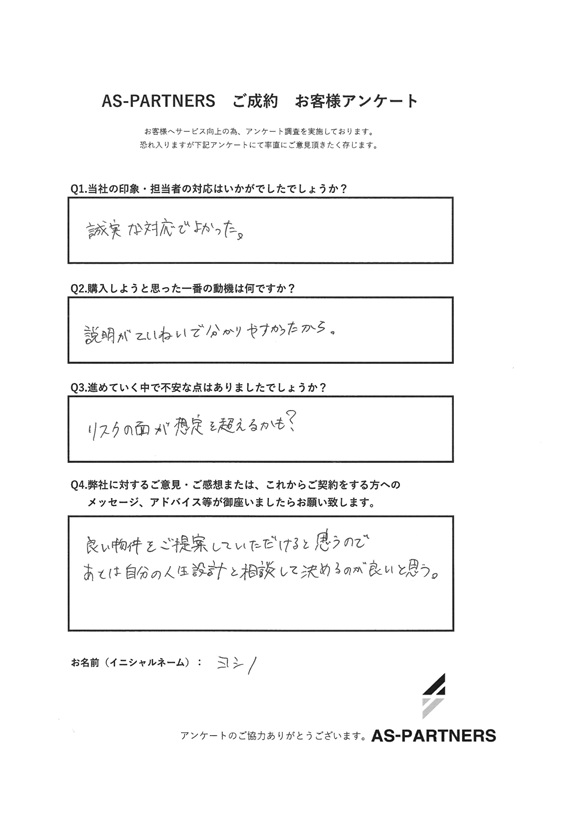 AS-PARTNERS ご成約 お客様アンケート
お客様へサービス向上の為、アンケート調査を実施しております。
恐れ入りますが下記アンケートにて率直にご意見頂きたく存じます。
Q1.当社の印象・担当者の対応はいかがでしたでしょうか？
誠実な対応でよかった。
Q2.購入しようと思った一番の動機は何ですか？
説明がていねいで分かりやすかったから。
Q3.進めていく中で不安な点はありましたでしょうか？
リスクの面が想定を超えるかも？
Q4.弊社に対するご意見・ご感想または、これからご契約をする方への
メッセージ、アドバイス等が御座いましたらお願い致します。
良い物件をご提案していただけると思うので
あとは自分の人生設計と相談して決めるのが良いと思う。
お名前（イニシャルネーム）： ヨシノ
アンケートのご協力ありがとうございます。 AS-PARTNERS